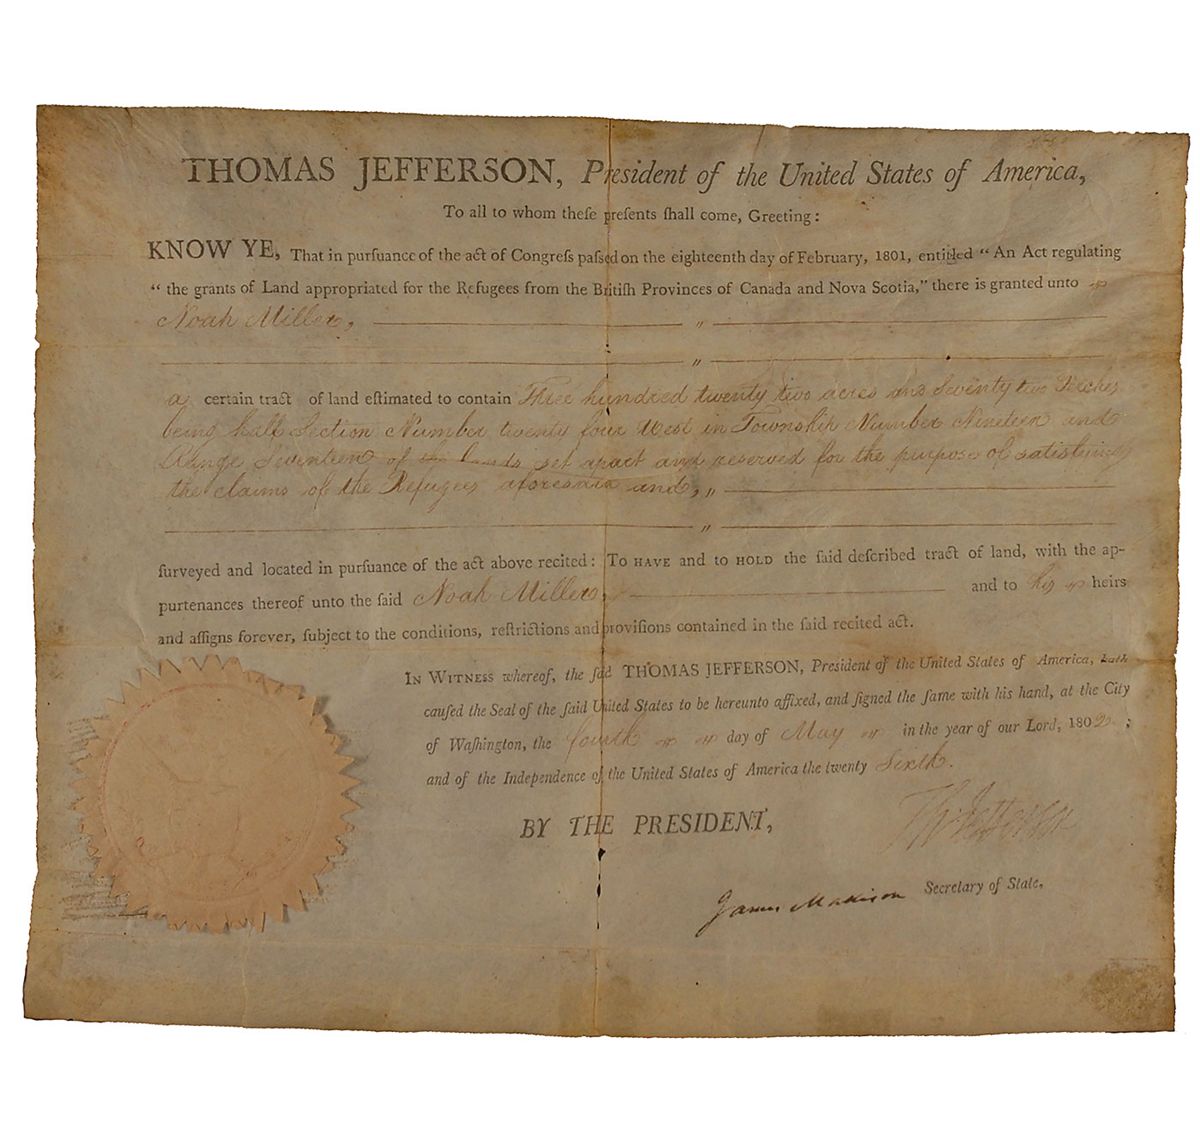 THOMAS JEFFERSON, President of the United States of America,
To all to whom theſe preſents ſhall come, Greeting:
KNOW YE, That in purſuance of the act of Congreſs paſſed on the eighteenth day of February, 1801, entitled "An Act regulating
"the grants of Land appropriated for the Refugees from the Britiſh Provinces of Canada and Nova Scotia," there is granted unto
Noah Miller, "
"
a certain tract of land eſtimated to contain Three hundred twenty two acres and Seventy two
being half Section Number twenty four West in Township Number Nineteen and
Range Seventeen of the lands set apart and reserved for the purpose of satisfying
the claims of the Refugees aforesaid and, "
"
ſurveyed and located in purſuance of the act above recited: To HAVE and to HOLD the ſaid deſcribed tract of land, with the ap-
purtenances thereof unto the ſaid Noah Miller, and to his heirs
and aſſigns forever, ſubject to the conditions, reſtrictions and proviſions contained in the ſaid recited act.
IN WITNESS whereof, the ſaid THOMAS JEFFERSON, Preſident of the United States of America, hath
cauſed the Seal of the ſaid United States to be hereunto affixed, and ſigned the ſame with his hand, at the City
of Waſhington, the fourth day of May in the year of our Lord, 1802;
and of the Independence of the United States of America the twenty Sixth.
BY THE PRESIDENT,
Th Jefferson
James Madison Secretary of State,